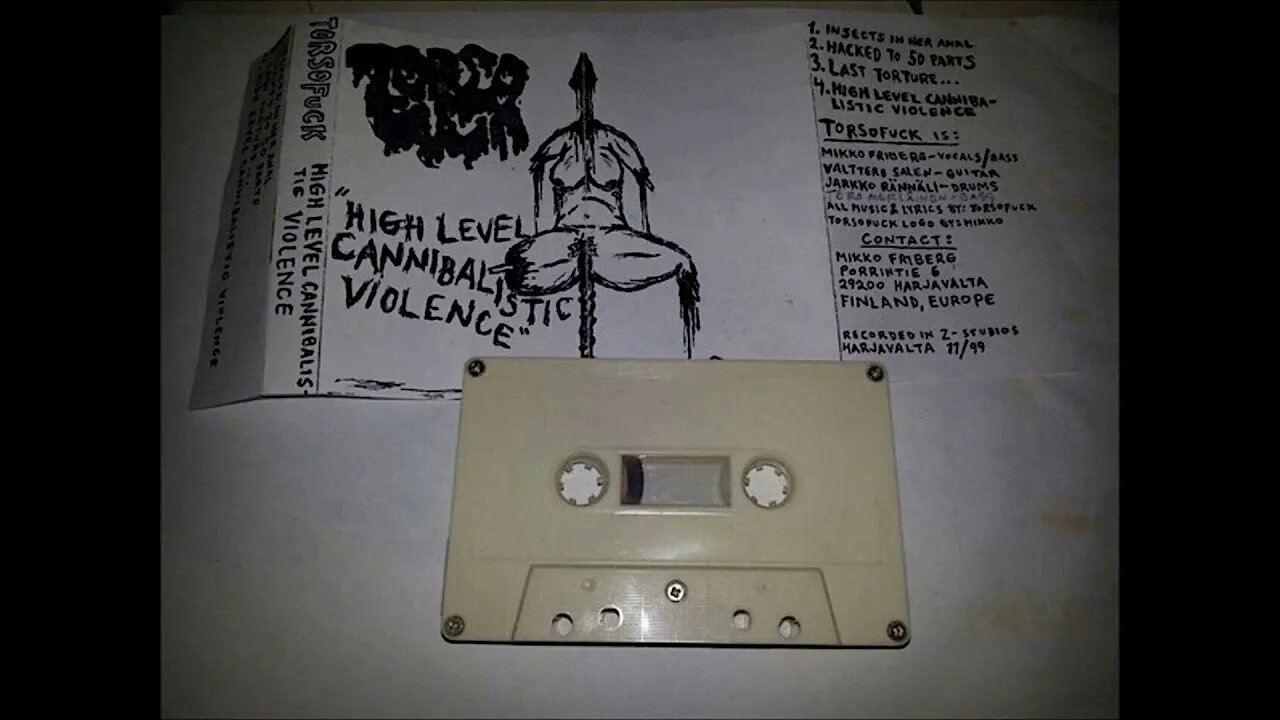 TORSOFUCK HIGH LEVEL CANNIBALIS-
TIC VIOLENCE
TORSO
FUCK
"HIGH LEVEL
CANNIBALISTIC
VIOLENCE"
1. INSECTS IN HER ANAL
2. HACKED TO 50 PARTS
3. LAST TORTURE...
4. HIGH LEVEL CANNIBA-
LISTIC VIOLENCE
TORSOFUCK IS:
MIKKO FRIBERG-VOCALS/BASS
VALTTERI SALEN-GUITAR
JARKKO RÄNNÄLI-DRUMS
ALL MUSIC & LYRICS BY: TORSOFUCK
TORSOFUCK LOGO BY: MIKKO
CONTACT:
MIKKO FRIBERG
PORRINTIE 6
29200 HARJAVALTA
FINLAND, EUROPE
RECORDED IN Z-STUDIOS
HARJAVALTA 11/99